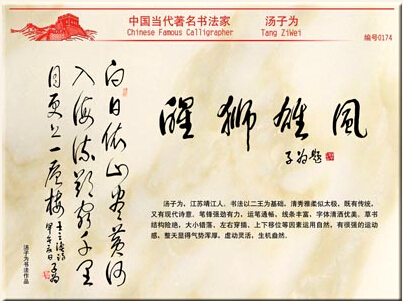 中国当代著名书法家 汤子为
Chinese Famous Calligrapher Tang ZiWei
编号0174
白日依山尽黄河
入海流欲穷千里
目更上一层楼
王之涣诗
子为
汤子为书法作品
醒狮雄风
子为题
汤子为,江苏靖江人,书法以二王为基础,清秀雅柔似太极,既有传统,
又有现代诗意,笔锋强劲有力,运笔通畅,线条丰富,字体清洒优美,草书
结构险绝,大小错落、左右穿插、上下移位等因素运用自然,有很强的运动
感,整天显得气势浑厚,虚动灵活,生机盎然.